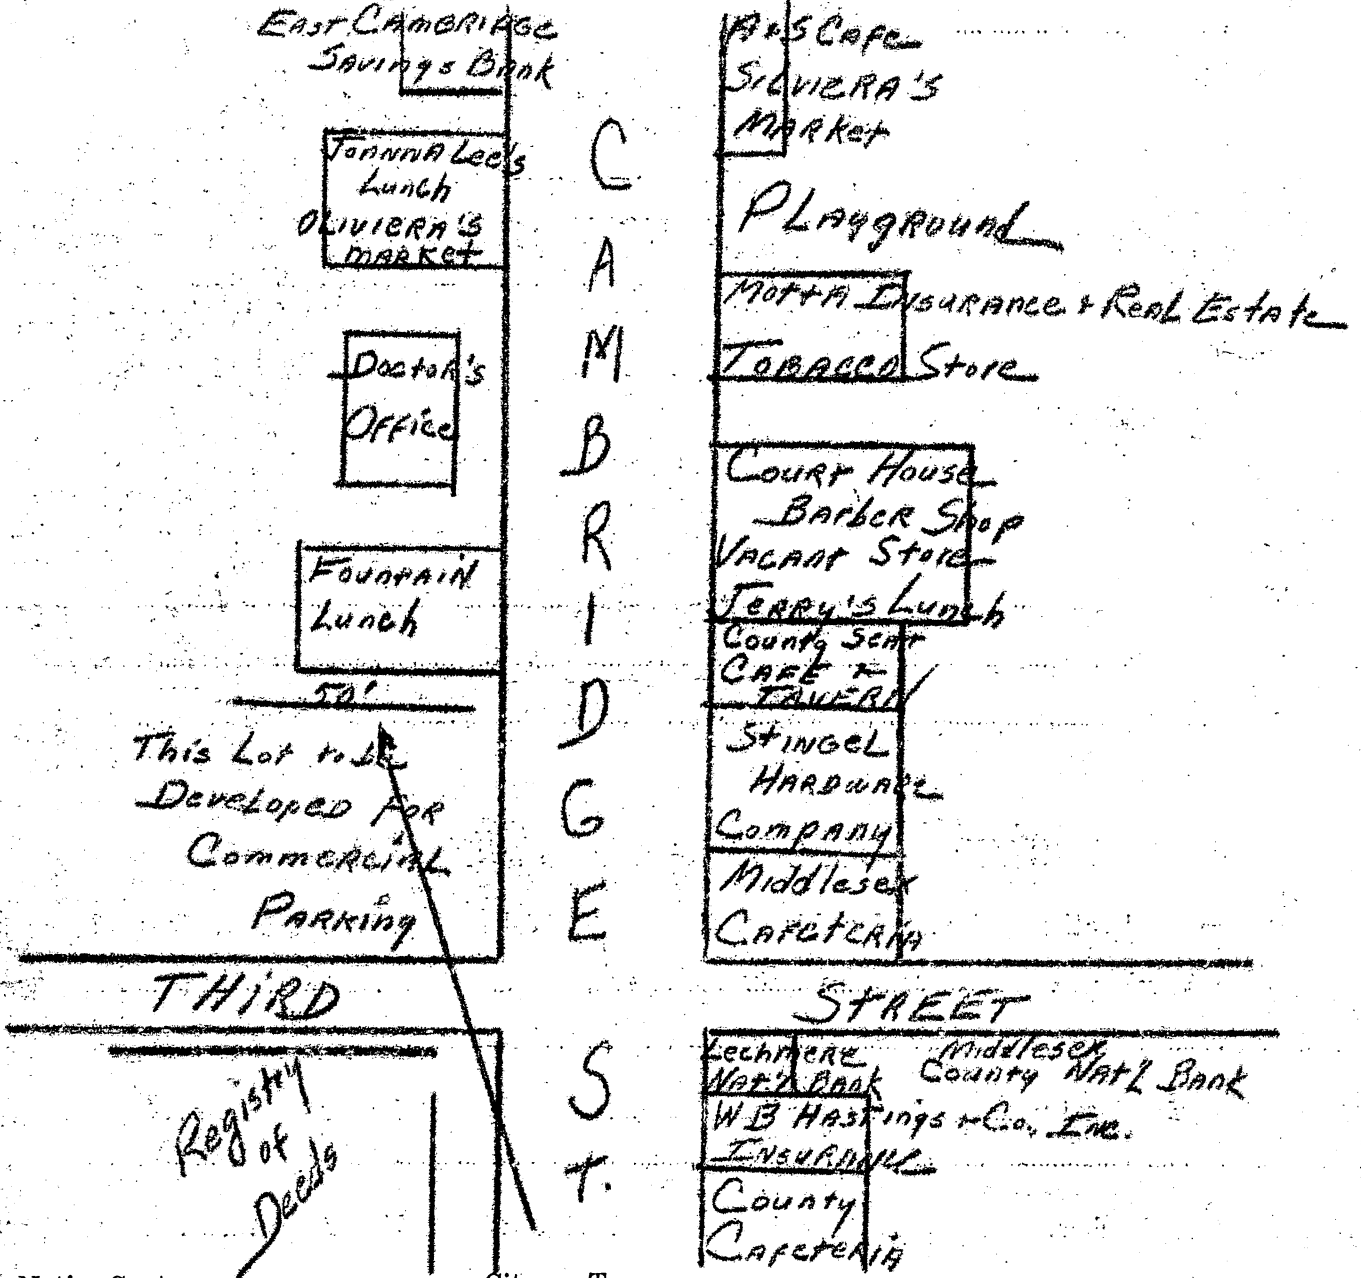 East Cambridge
Savings Bank
Joanna Lee's
Lunch
Oliviera's
Market
Doctor's
Office
Fountain
Lunch
50'
This Lot to be
Developed For
Commercial
Parking
THIRD
Registry
of
Deeds
CAMBRIDGE
ST.
A & S Cafe
Silviera's
Market
Playground
Motta Insurance & Real Estate
Tobacco Store
Court House
Barber Shop
Vacant Store
Jerry's Lunch
County Seat
CAFE &
TAVERN
Stingel
Hardware
Company
Middlesex
Cafeteria
STREET
Lechmere
Nat'l Bank
Middlesex
County Nat'l Bank
W B Hastings & Co., Inc.
Insurance
County
Cafeteria